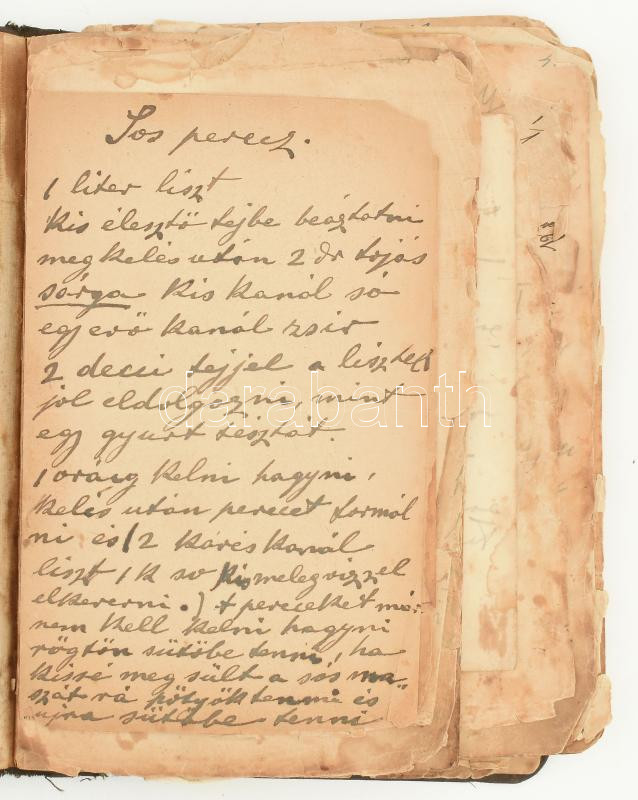 Sos perecz.
1 liter liszt
Kis élesztö tejbe beáztatni
megkelés után 2 dr tojás
sárga Kis Kanál só
egj evö Kanál zsir
2 decii tejjel a lisztel
jol eldolgozni, mint
egj gyurt tésztát.
1 oráig Kelni hagyni,
Kelés után perecet formál
ni és (2 Kávés Kanál
liszt 1 K so Kis melegvizzel
elkeverni.) A pereceket már
nem Kell Kelni hagyni
rögtön sütöbe tenni, ha
Kissé meg sült a sós ma„
szát rá pötyök tenni és
ujra sütöbe tenni
darabanth